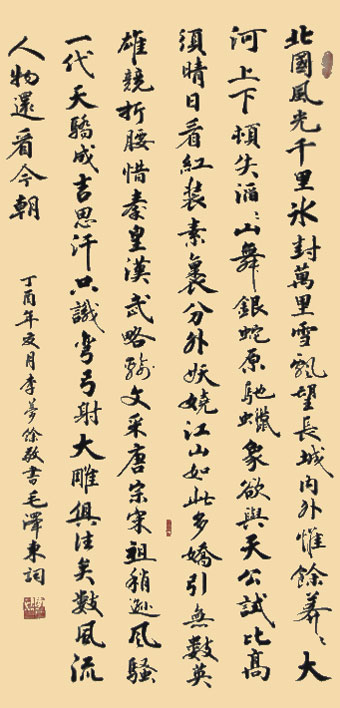 北國風光千里冰封萬里雪飄望長城內外惟餘莽〻大
河上下頓失滔〻山舞銀蛇原馳蠟象欲與天公試比高
須晴日看紅裝素裹分外妖嬈江山如此多嬌引無數英
雄競折腰惜秦皇漢武略輸文采唐宗宋祖稍遜風騷
一代天驕成吉思汗只識彎弓射大雕俱往矣數風流
人物還看今朝
丁酉年夏月李夢餘敬書毛澤東詞